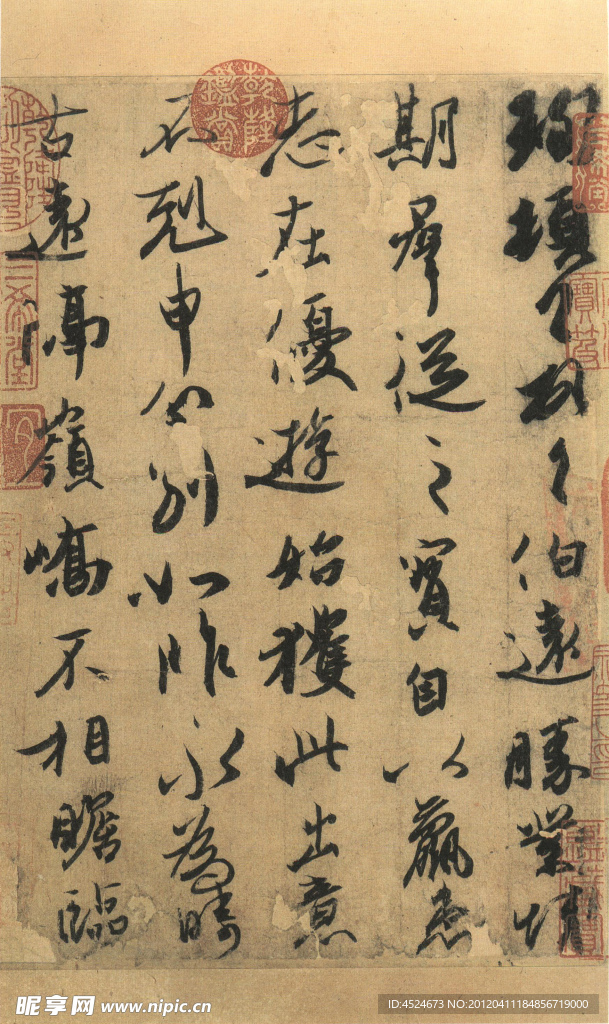 珣頓首頓首伯遠勝業情
期羣從之寶自以羸患
志在優遊始獲此出意
不剋申分別如昨永為疇
古遠隔嶺嶠不相瞻臨
乾隆鑑賞
三希堂
昵享网 www.nipic.cn
ID:4524673 NO:20120411184856719000